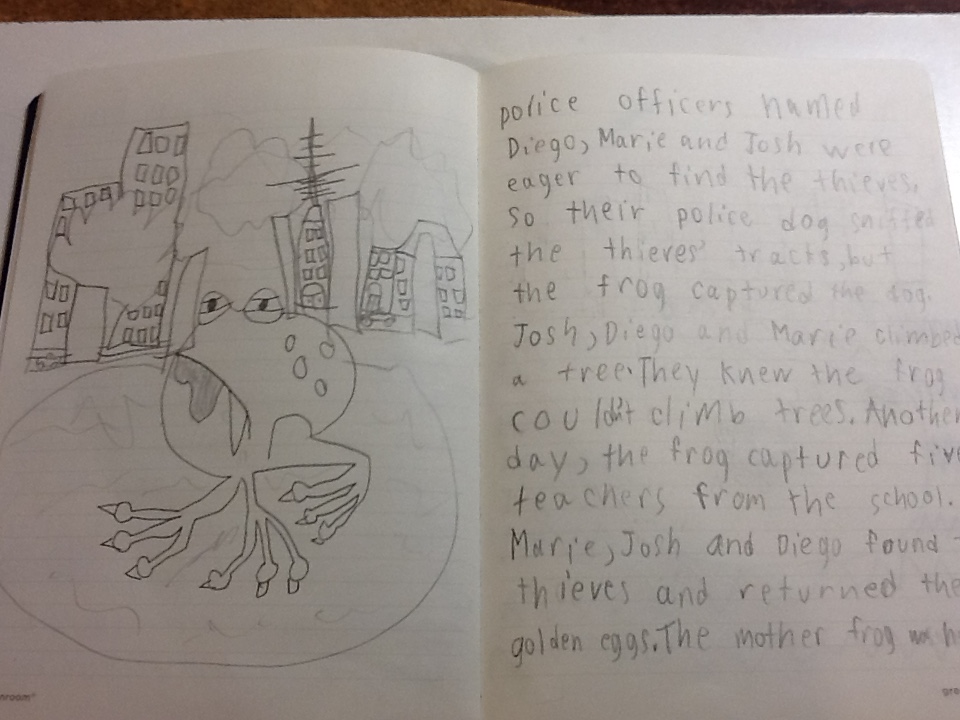 police officers named
Diego, Marie and Josh were
eager to find the thieves,
so their police dog sniffed
the thieves' tracks, but
the frog captured the dog.
Josh, Diego and Marie climbed
a tree. They knew the frog
couldn't climb trees. Another
day, the frog captured five
teachers from the school.
Marie, Josh and Diego found
thieves and returned the
golden eggs. The mother frog